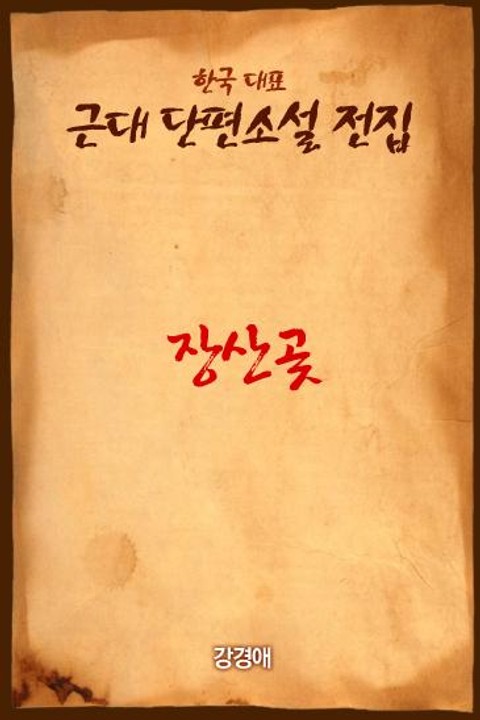 한국 대표
근대 단편소설 전집
장산곶
강경애